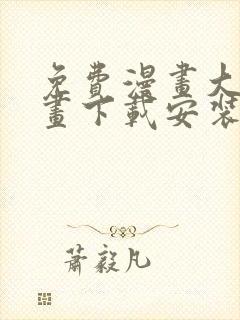 免費漫畫大
畫下載安裝
蕭毅凡